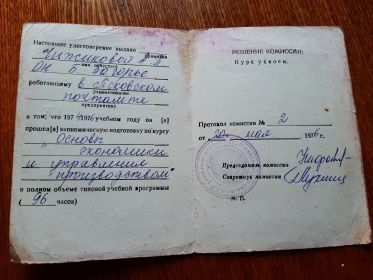 Настоящее удостоверение выдано
Чижиковой
(фамилия
имя, отчество)
ОН б. Загорье
работающему в Псковском
(наименование
почтамте
предприятия)
в том, что 1974/1976 учебном году он [а]
прошел[а] экономическую подготовку по курсу
„Основы
экономики
и управления
производством"
в полном объеме типовой учебной программы
(96 часов)
РЕШЕНИЕ КОМИССИИ:
Курс усвоен.
Протокол комиссии № 2
от мая 1976 г.
Председатель комиссии
Секретарь комиссии
М. П.